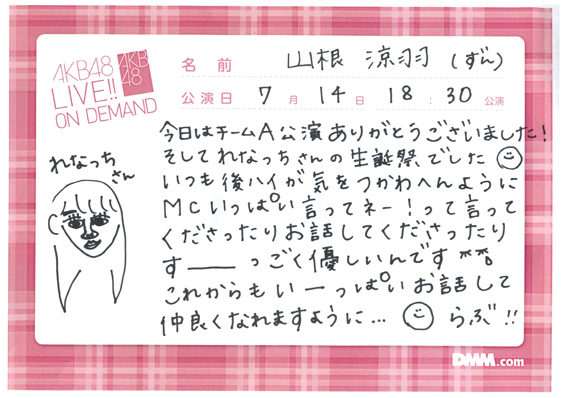 AKB48
LIVE!!
ON DEMAND
AKB
48
名前 山根 涼羽 (ずん)
公演日 7月 14日 18:30 公演
今日はチームA公演ありがとうございました!
そしてれなっちさんの生誕祭でした
いつも後ハイが気をつかわへんように
MCいっぱい言ってネー!って言って
くださったりお話してくださったり
す――っごく優しいんです
これからもいーっぱいお話して
仲良くなれますように... らぶ!!
れなっち
さん
DMM.com